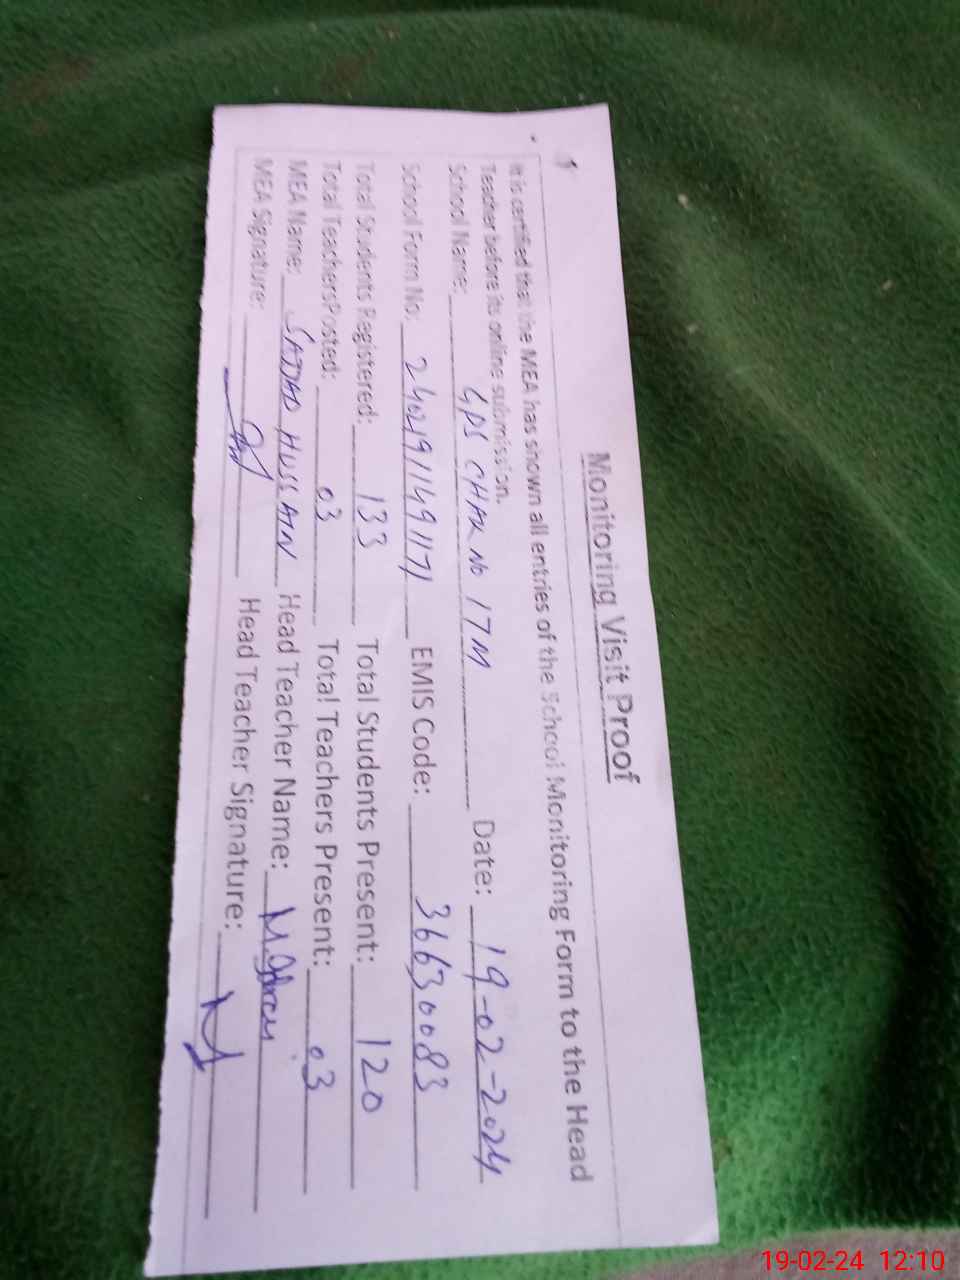 Monitoring Visit Proof
It is certified that the MEA has shown all entries of the School Monitoring Form to the Head
Teacher before its online submission.
School Name: GPS CHAK NO 17M Date: 19-02-2024
School Form No: 24021911491171 EMIS Code: 36630083
Total Students Registered: 133 Total Students Present: 120
Total TeachersPosted: 03 Total Teachers Present: 03
MEA Name: SAJJAD HUSSAIN Head Teacher Name:
MEA Signature: Head Teacher Signature:
19-02-24 12:10